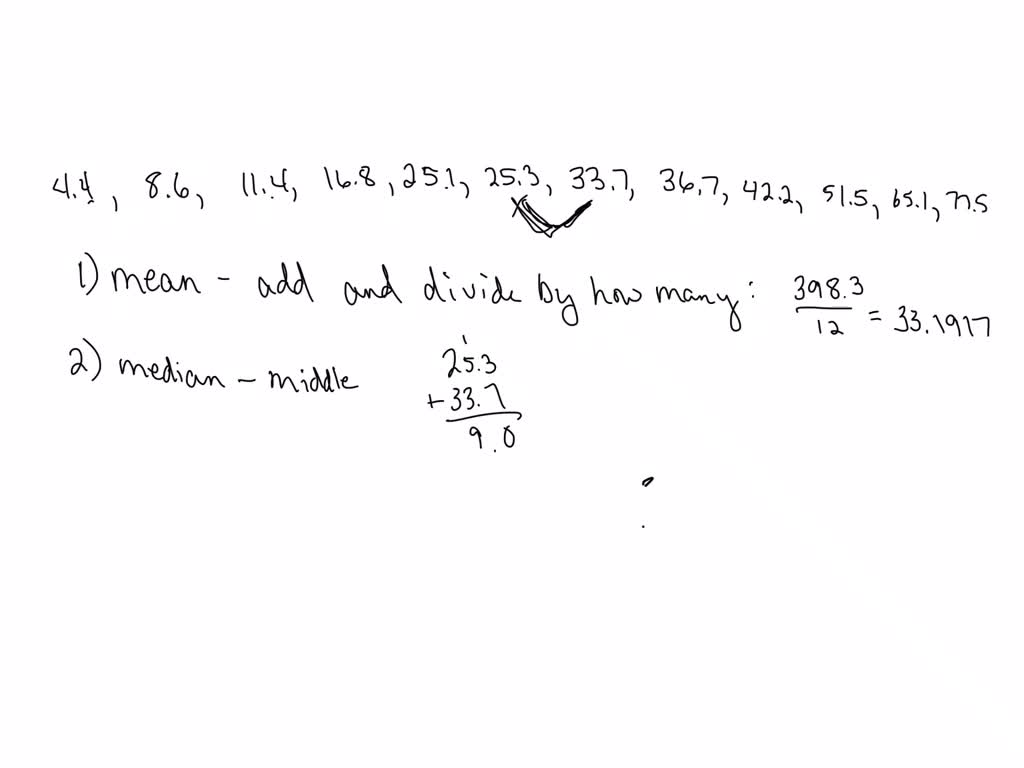 4.4, 8.6, 11.4, 16.8, 25.1, 25.3, 33.7, 36.7, 42.2, 51.5, 65.1, 77.5
1) mean - add and divide by how many: 398.3/12 = 33.1917
2) median - middle
1
25.3
+33.7
9.0